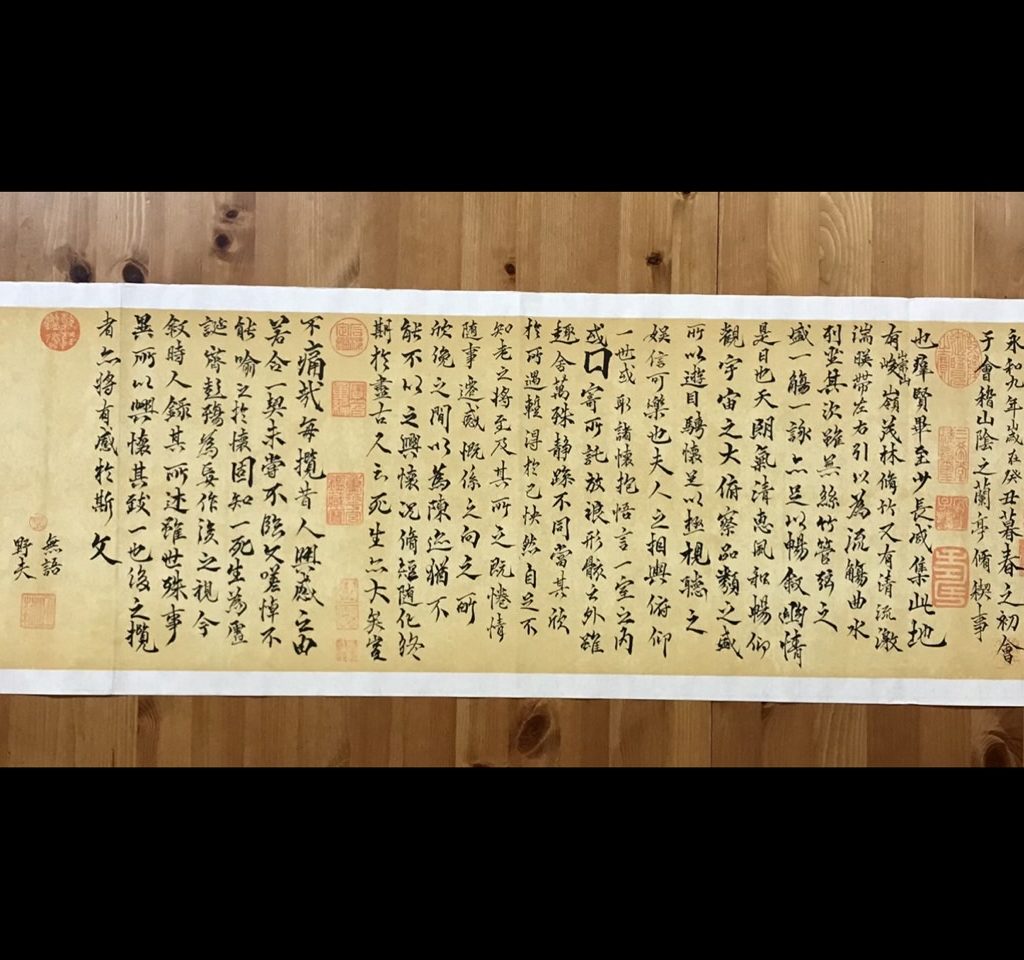 永和九年歲在癸丑暮春之初會
于會稽山陰之蘭亭脩禊事
也羣賢畢至少長咸集此地
有崇山峻嶺茂林脩竹又有清流激
湍暎帶左右引以為流觴曲水
列坐其次雖無絲竹管弦之
盛一觴一詠亦足以暢敘幽情
是日也天朗氣清惠風和暢仰
觀宇宙之大俯察品類之盛
所以遊目騁懷足以極視聽之
娛信可樂也夫人之相與俯仰
一世或取諸懷抱悟言一室之內
或口寄所託放浪形骸之外雖
趣舍萬殊静躁不同當其欣
於所遇輒得於己快然自足不
知老之將至及其所之既惓情
随事遷感慨係之向之所
欣俛之間以為陳迹猶不
能不以之興懷況脩短随化終
期於盡古人云死生亦大矣豈
不痛哉每攬昔人興感之由
若合一契未嘗不臨文嗟悼不
能喻之於懷固知一死生為虛
誕齊彭殤為妄作後之視今
敘時人錄其所述雖世殊事
異所以興懷其致一也後之攬
者亦將有感於斯文
無語
野夫